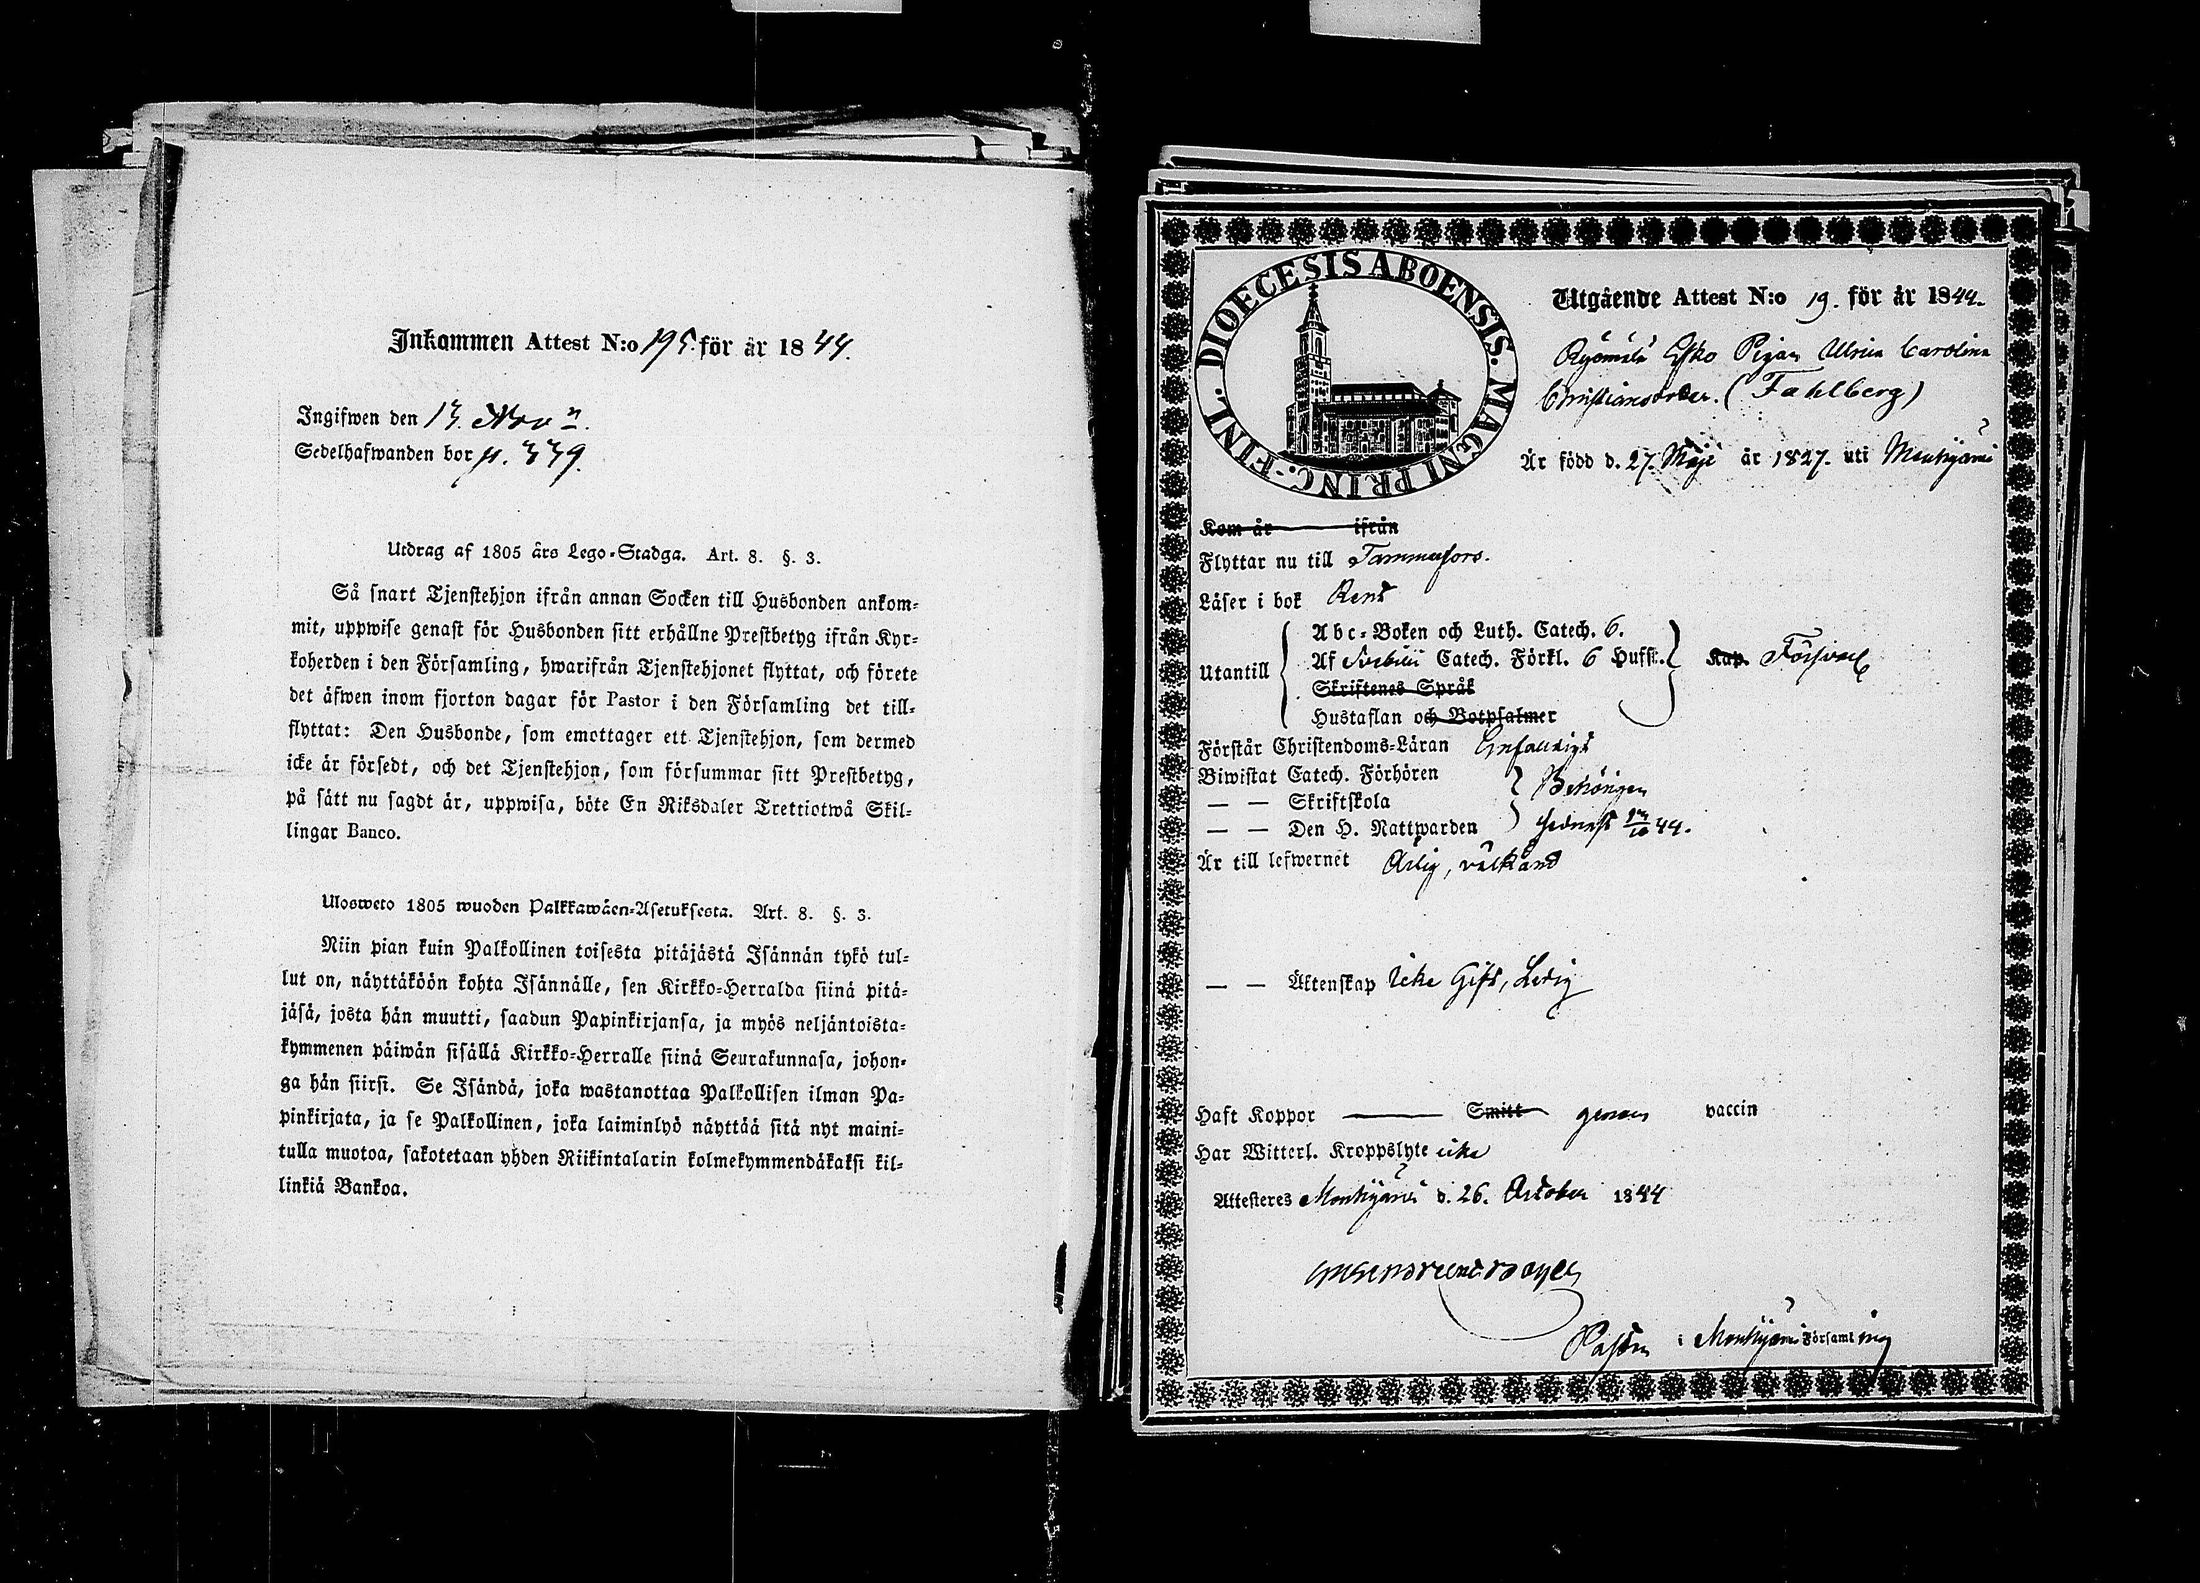 Inkommen Attest N:o 195. för år 1844.
Ingifwen den 13. Nov
Sedelhafwanden bor p. 339.
Utdrag af 1805 års Lego-Stadga. Art. 8. §. 3.
Så snart Tjenstehjon ifrån annan Socken till Husbonden ankom-
mit, uppwise genast för Husbonden sitt erhållne Prestbetyg ifrån Kyr-
koherden i den Församling, hwarifrån Tjenstehjonet flyttat, och förete
det äfwen inom fjorton dagar för Pastor i den Församling det till-
flyttat: Den Husbonde, som emottager ett Tjenstehjon, som dermed
icke är försedt, och det Tjenstehjon, som försummar sitt Prestbetyg,
på sätt nu sagdt är, uppwisa, böte En Riksdaler Trettiotwå Skil-
lingar Banco.
Ulosweto 1805 wuoden Palkkawäen-Asetuksesta. Art. 8. §. 3.
Niin pian kuin Palkollinen toisesta pitäjästä Isännän tykö tul-
lut on, näyttäköön kohta Isännälle, sen Kirkko-Herralda siinä pitä-
jäsä, josta hän muutti, saadun Papinkirjansa, ja myös neljäntoista-
kymmenen päiwän sisällä Kirkko-Herralle siinä Seurakunnasa, johon-
ga hän siirsi. Se Isändä, joka wastanottaa Palkollisen ilman Pa-
pinkirjata, ja se Palkollinen, joka laiminlyö näyttää sitä nyt maini-
tulla muotoa, sakotetaan yhden Riikintalarin kolmekymmendäkaksi kil-
linkiä Bankoa.
DIOECESIS ABOENSIS. MAGNI PRINC.-FINL.
Utgående Attest N:o 19. för år 1844.
Pigan Ulrica Carolina
Christiansdotter. (Fahlberg)
Är född d. 27. Maji år 1827. uti Mouhijärvi
Kom år ifrån
Flyttar nu till Tammerfors.
Läser i bok Rent
Utantill
Abc-Boken och Luth. Catech. 6.
Af Svebilii Catech. Förkl. 6 Hufst.
Kap. Försvarl
Skriftenes Språk
Hustaflan och Botpsalmer
Förstår Christendoms-Läran Enfaldigt
Biwistat Catech. Förhören
— — Skriftskola Behörigen
— — Den H. Nattwarden sednast 44.
Är till lefwernet Ärlig, välkänd
— — Äktenskap Icke Gift, Ledig
Haft Koppor Smitt genom vaccin
Har Witterl. Kroppslyte icke
Attesteres Mouhijärvi d. 26. October 1844
Pastor i Mouhijärvi Församling